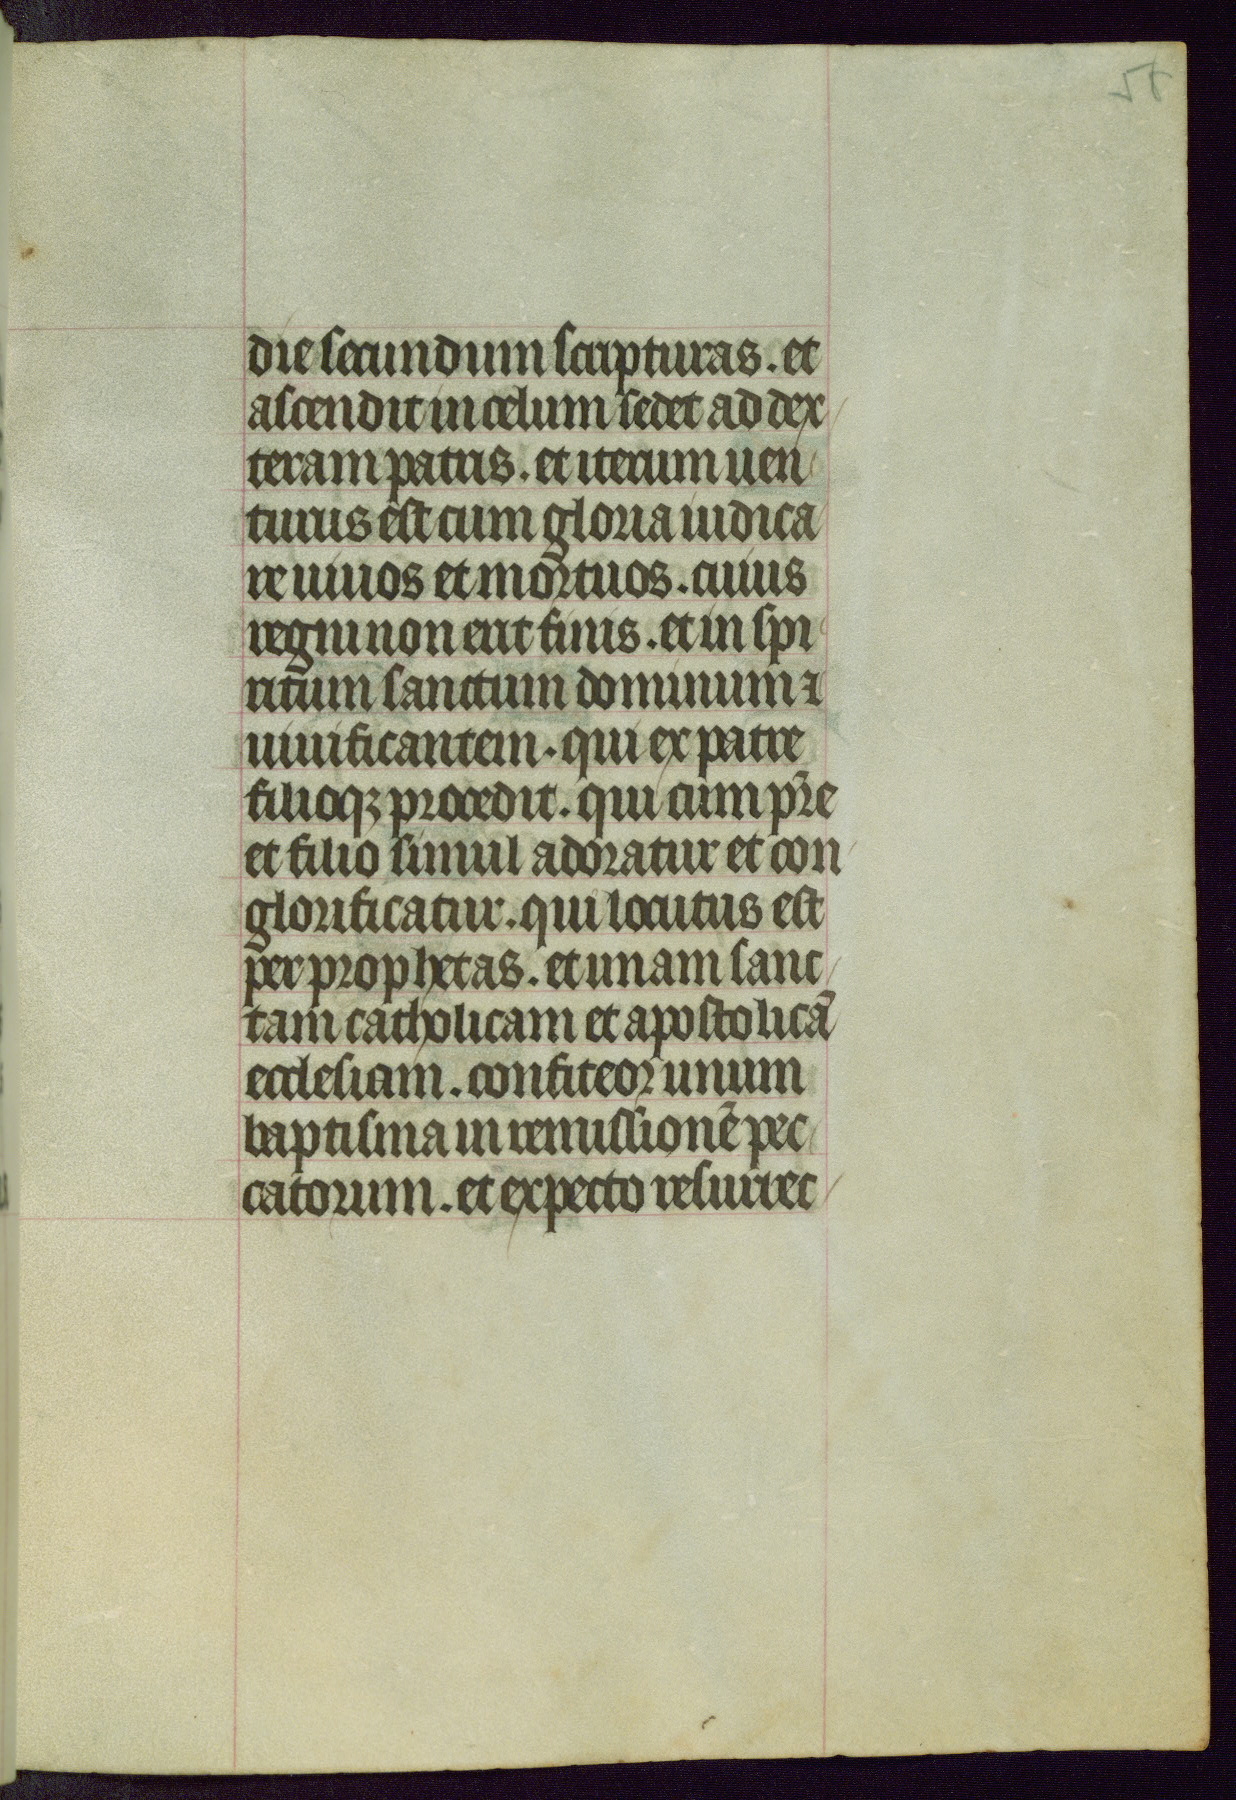 die secundum scripturas. et
ascendit in celum sedet ad dex
teram patris. et iterum uen
turus est cum gloria iudica
re uiuos et mortuos. cuius
regni non erit finis. et in spi
ritum sanctum dominum ⁊
uiuificantem. qui ex patre
filioqꝫ procedit. qui cum pr̄e
et filio simul adoratur et con
glorificatur. qui locutus est
per prophetas. et unam sanc
tam catholicam et apostolicā
ecclesiam. confiteor unum
baptisma in remissionē pec
catorum. et expecto resurrec